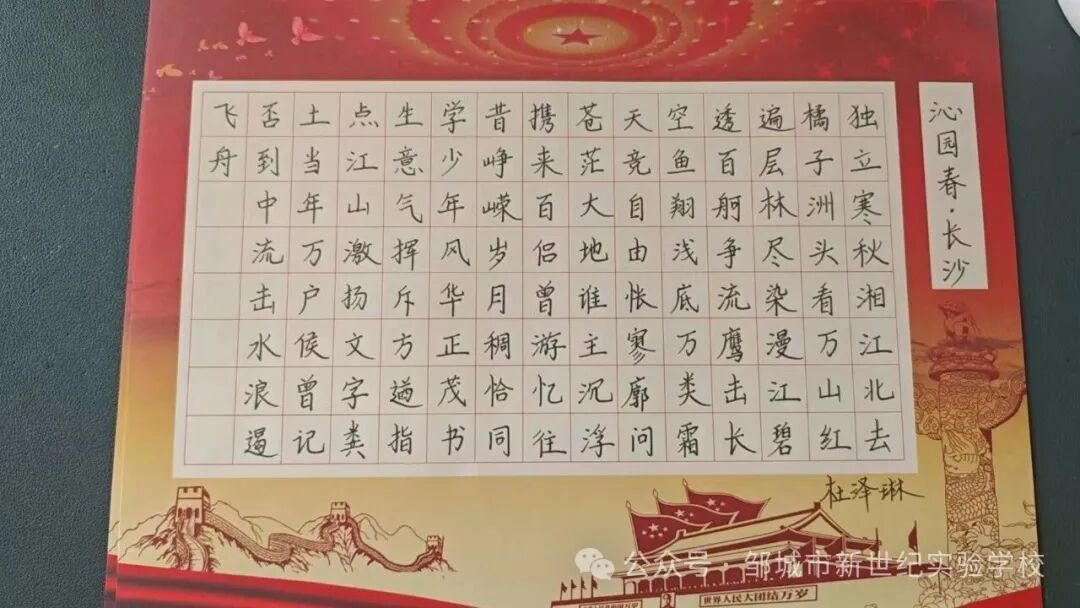 沁园春·长沙
独立寒秋湘江北去
橘子洲头看万山红
遍层林尽染漫江碧
透百舸争流鹰击长
空鱼翔浅底万类霜
天竞自由怅寥廓问
苍茫大地谁主沉浮
携来百侣曾游忆往
昔峥嵘岁月稠恰同
学少年风华正茂书
生意气挥斥方遒指
点江山激扬文字粪
土当年万户侯曾记
否到中流击水浪遏
飞舟
杜泽琳
公众号·邹城市新世纪实验学校
世界人民大团结万岁